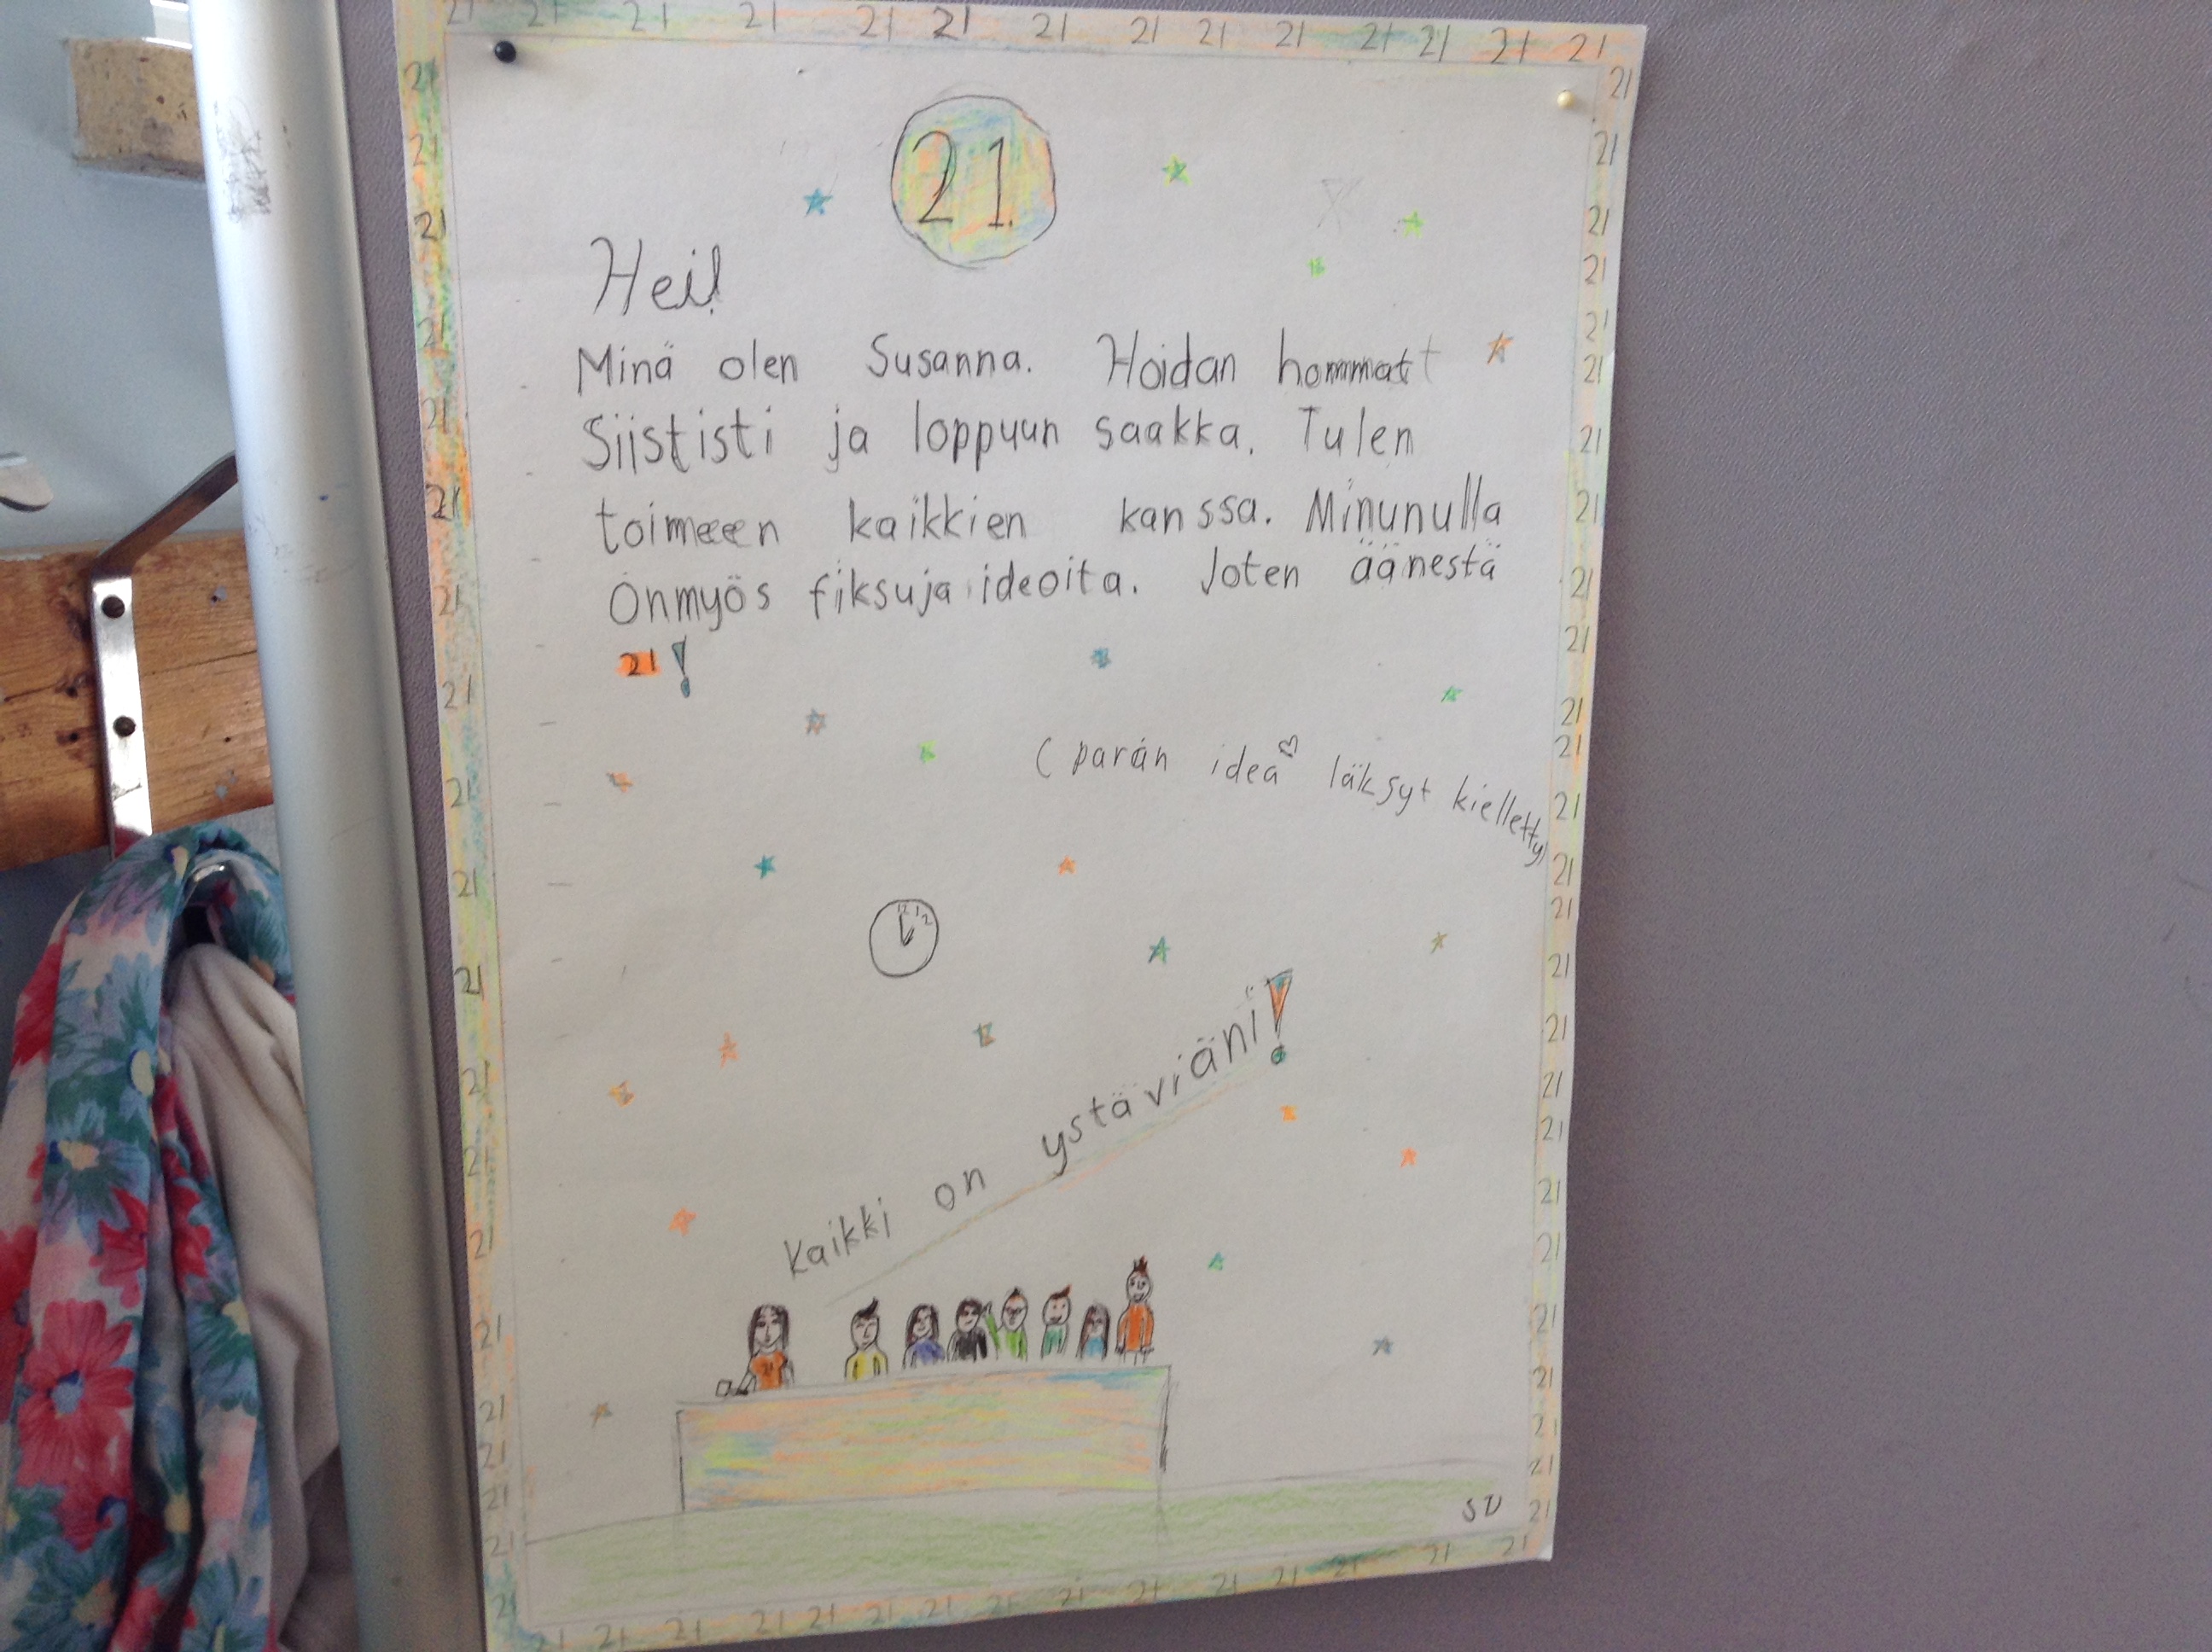 21.
Hei!
Minä olen Susanna. Hoidan hommat
Siististi ja loppuun saakka. Tulen
toimeen kaikkien kanssa. Minunulla
Onmyös fiksuja ideoita. Joten äänestä
21!
(parän idea läksyt kielletty)
12 1 2
Kaikki on ystäviäni!
21